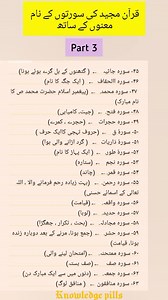 قرآن مجید کی سورتوں کے نام
معنوں کے ساتھ
Part 3
۴۵- سورہ جاثیہ ← (گھٹنوں کے بل گرے ہوئے ہونا)
۴۶- سورہ الاحقاف ← (ایک جگہ کا نام)
۴۷- سورہ محمد ← (پیغمبر اسلام حضرت محمد ص کا
نام مبارک)
۴۸- سورہ فتح ← (جیت، کامیابی)
۴۹- سورہ حجرات ← (حجرے، کمرے)
۵۰- سورہ ق ← (حروف تہجی کاایک حرف)
۵۱- سورہ ذاریات ← (گرد اڑانے والی ہوا)
۵۲- سورہ طور ← (ایک پہاڑ کا نام)
۵۳- سورہ نجم ← (ستارہ)
۵۴- سورہ قمر ← (چاند)
۵۵- سورہ رحمن ← (بہت زیادہ رحم فرمانے والا ، اللہ
تعالی کے اسمائے حسنی)
۵۶- سورہ واقعہ ← (قیامت)
۵۷- سورہ حدید ← (لوہا)
۵۸- سورہ مجادلہ ← (بحث ، تکرار ، جھگڑا)
۵۹- سورہ حشر ← (جمع ہونا، مرنے کے بعد دوبارہ زندہ
ہونا، قیامت)
۶۰- سورہ ممتحنہ ← (امتحان لینے والی)
۶۱- سورہ صف ← (صف بستہ)
۶۲- سورہ جمعہ ← (دنوں میں سے ایک مبارک دن)
۶۳- سورہ منافقون ← (منافق لوگ)
Knowledge pills